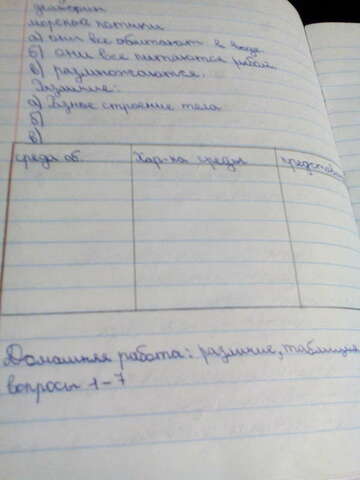 дельфин
морской котики
а) они все обитают в воде
б) они все питаются рыбой
в) размножаются.
Различие:
а) Разное строение тела
б)
в)
среда об. Хар-ка среды представи
Домашняя работа: различие, таблица,
вопросы 1-7